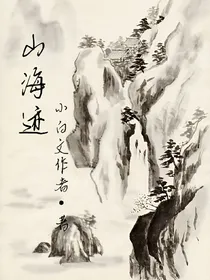 山海迹
小白文作者·著